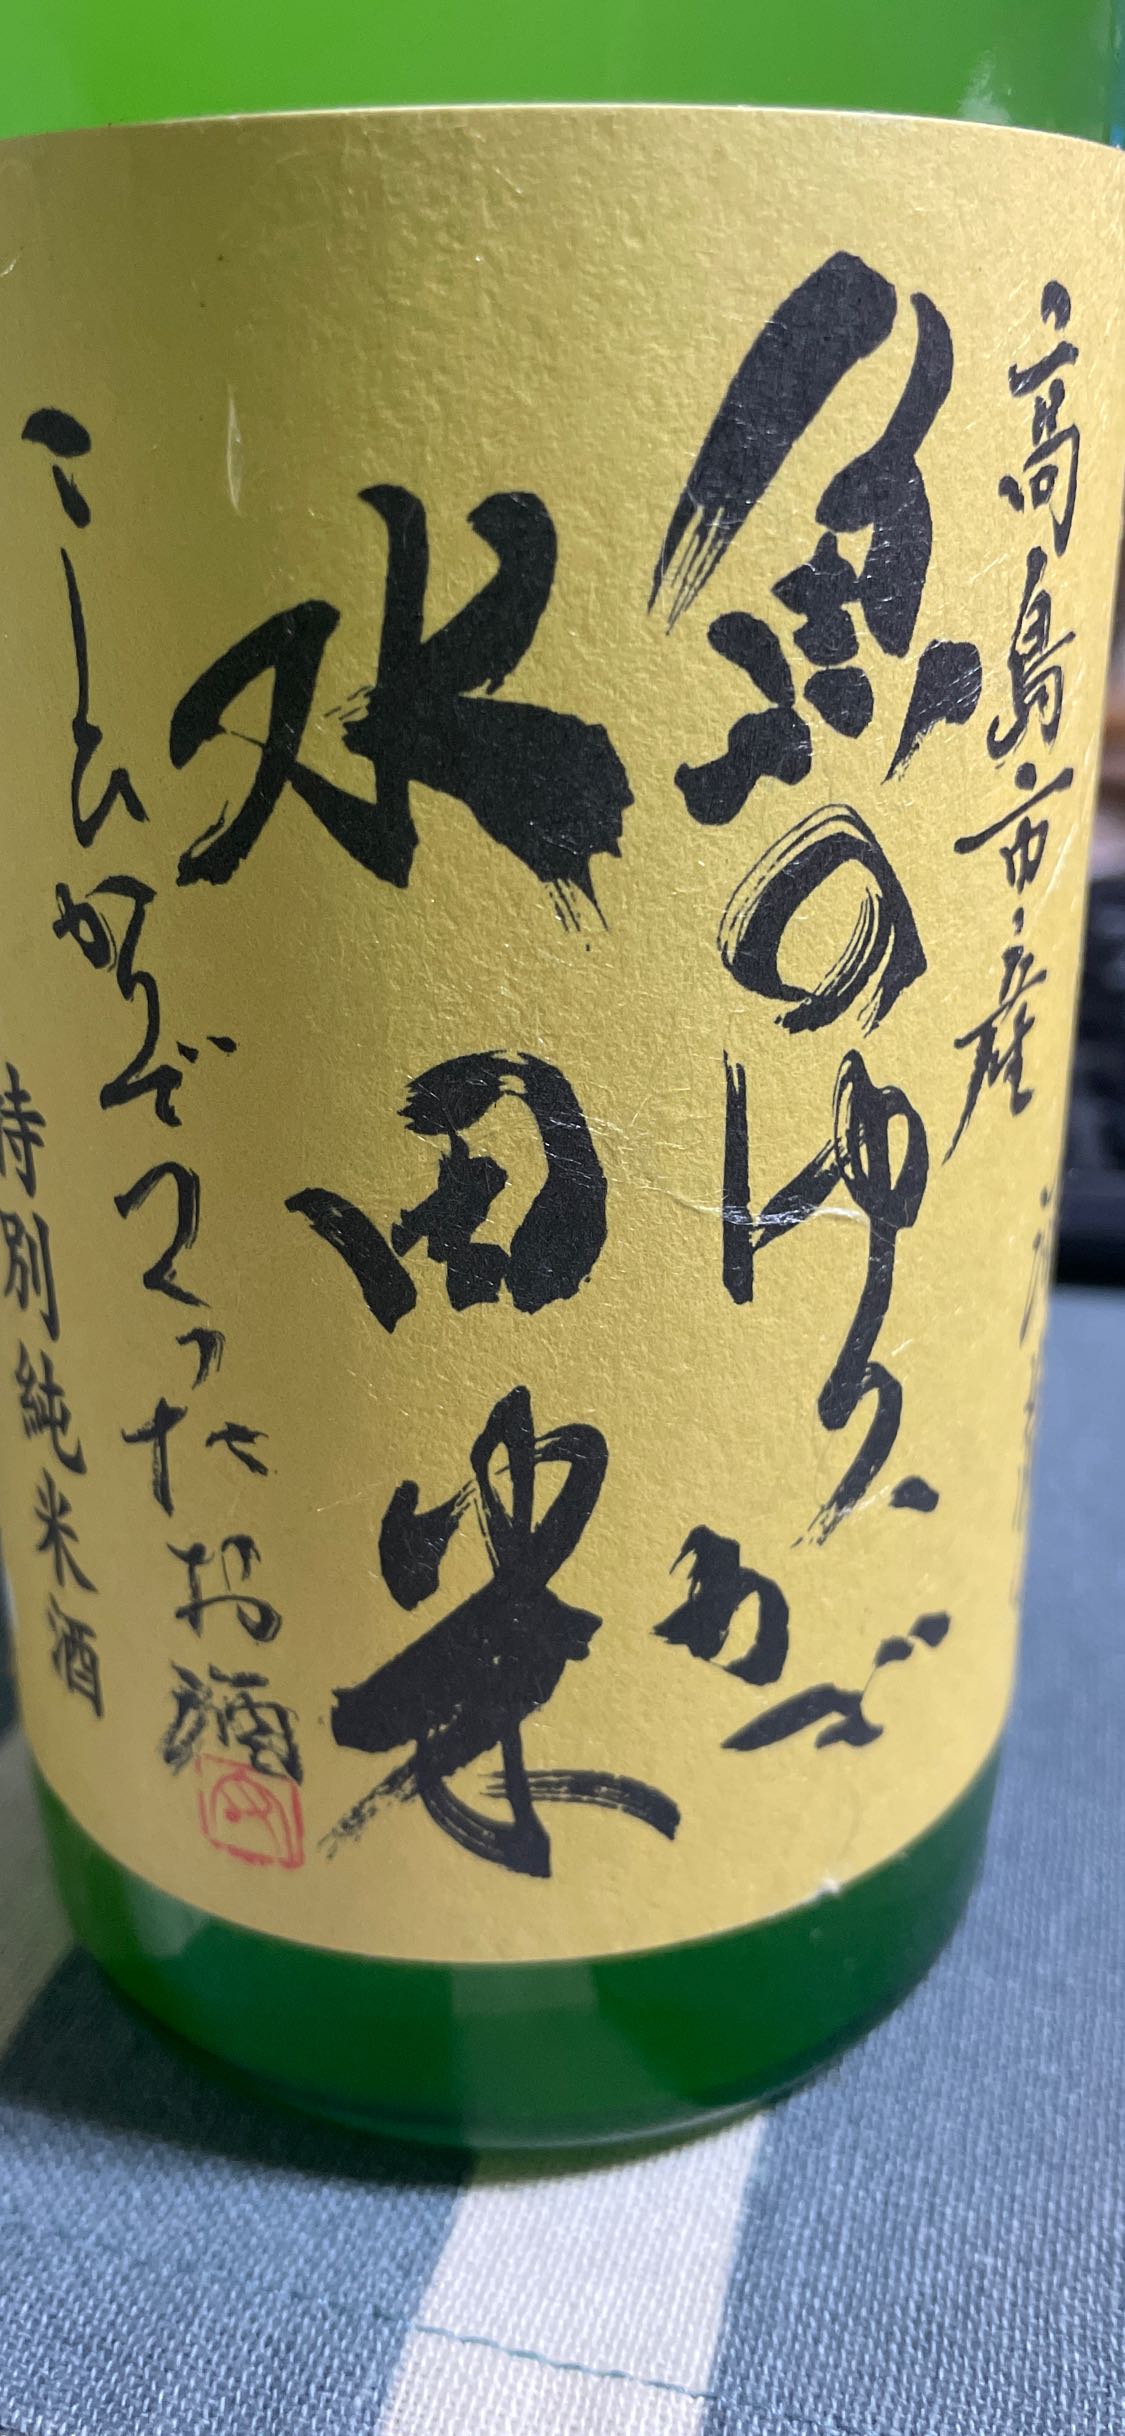 高島市産
魚のゆりかご
水田米
こしひかりでつくったお酒
特別純米酒